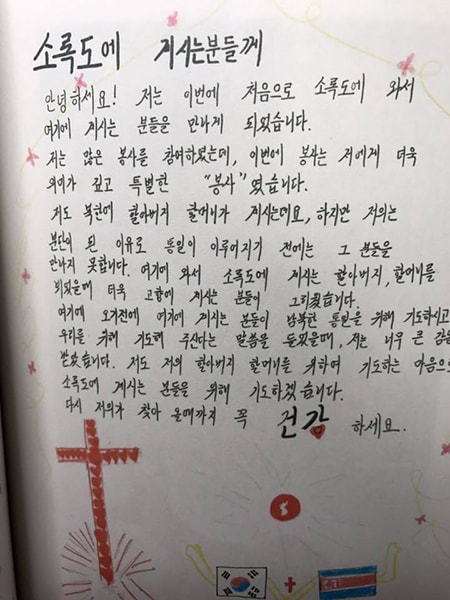 소록도에 계시는분들께
안녕하세요! 저는 이번에 처음으로 소록도에 와서
여기에 계시는 분들을 만나게 되었습니다.
저는 많은 봉사를 참여하였는데, 이번에 봉사는 저에게 더욱
의미가 깊고 특별한 "봉사"였습니다.
저도 북한에 할아버지 할머니가 계시는데요, 하지만 저희는
분단이 된 이유로 통일이 이루어지기 전에는 그 분들을
만나지 못합니다. 여기에 와서 소록도에 계시는 할아버지, 할머니를
뵈었을때 더욱 고향에 계시는 분들이 그리웠습니다.
여기에 오기전에 여기에 계시는 분들이 남북한 통일을 위해 기도하시고
우리를 위해 기도해 주신다는 말씀을 들었을때, 저는 너무 큰 감동
받았습니다. 저도 저의 할아버지 할머니를 위하여 기도하는 마음으로
소록도에 계시는 분들을 위해 기도하겠습니다.
다시 저희가 찾아 올때까지 꼭 건강 하세요.